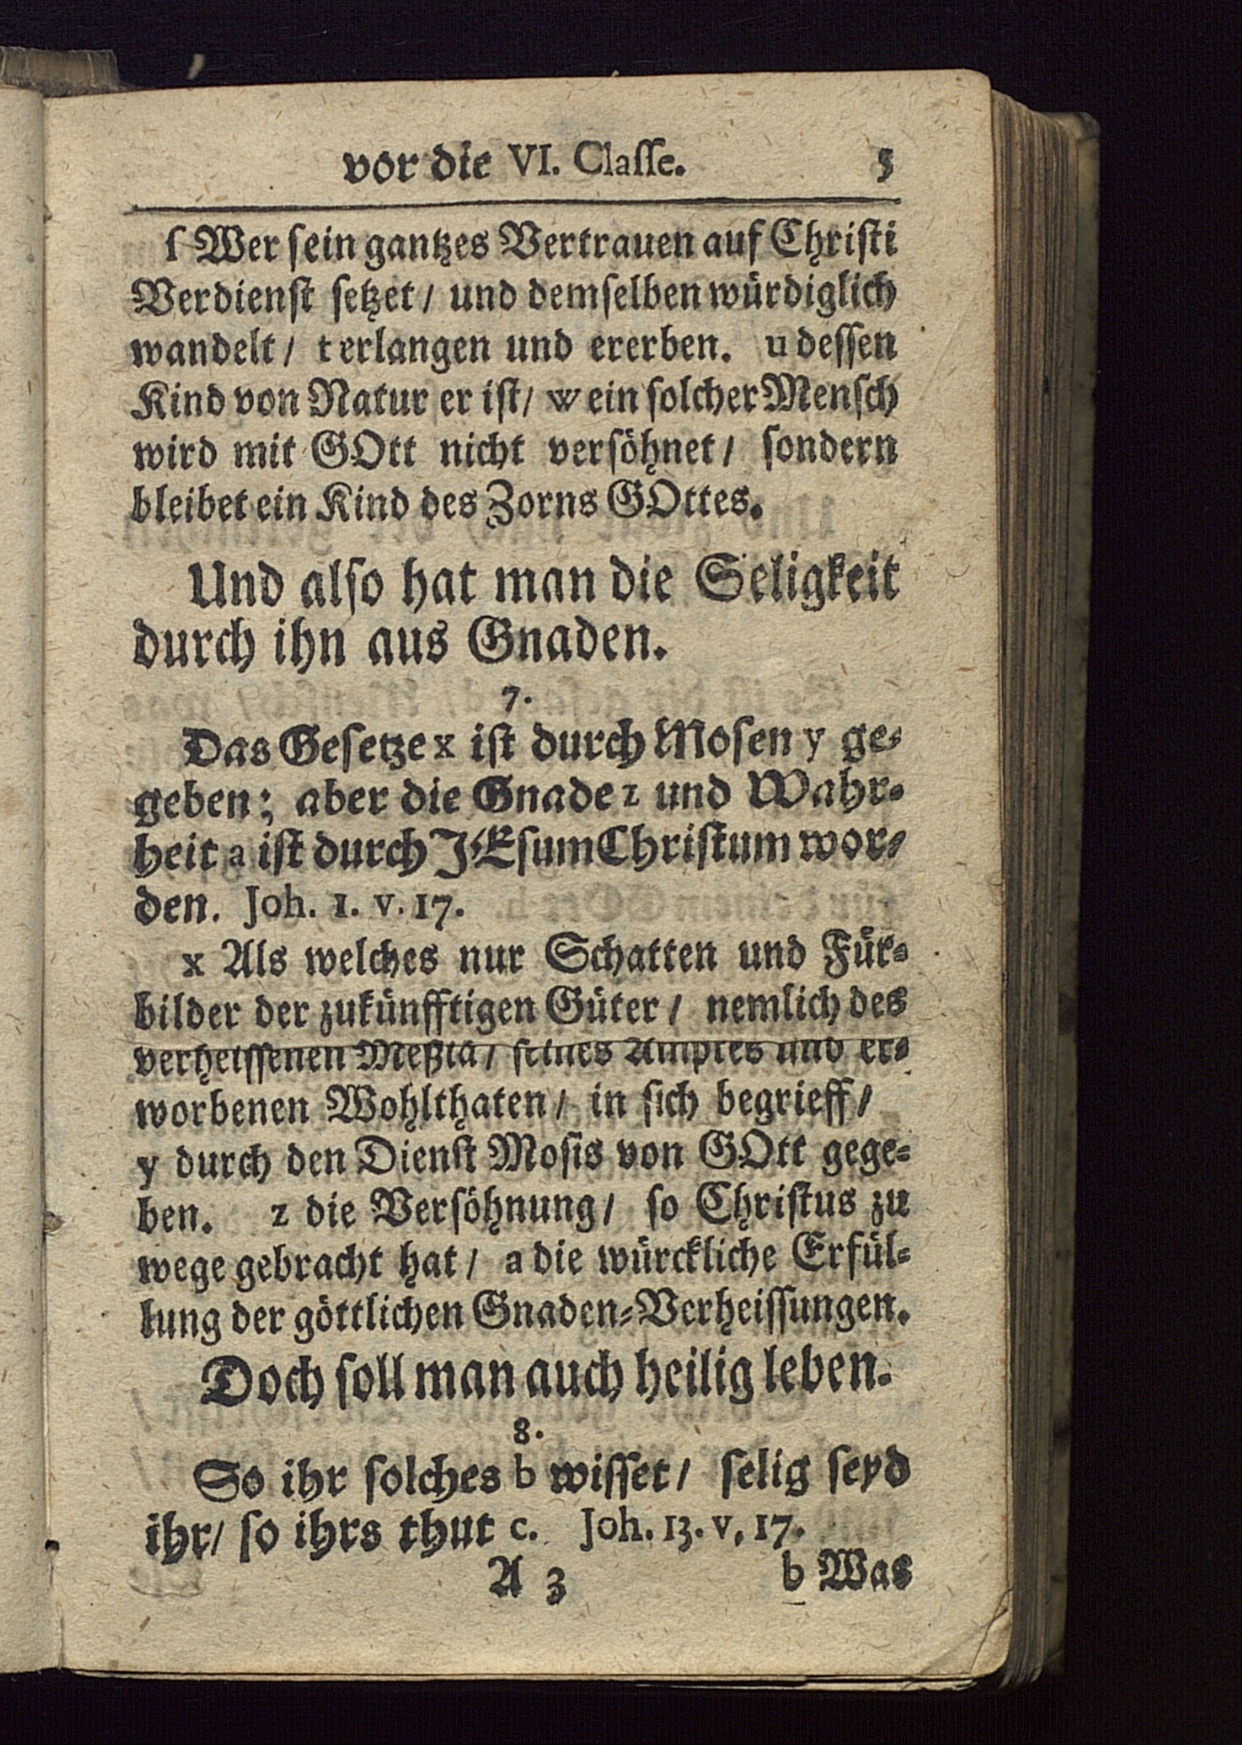 vor die VI. Classe. 5
ſ Wer sein gantzes Vertrauen auf Christi
Verdienst setzet / und demselben würdiglich
wandelt / t erlangen und ererben. u dessen
Kind von Natur er ist / w ein solcher Mensch
wird mit GOtt nicht versöhnet / sondern
bleibet ein Kind des Zorns GOttes.
Und also hat man die Seligkeit
durch ihn aus Gnaden.
7.
Das Gesetze x ist durch Mosen y ge-
geben; aber die Gnade z und Wahr-
heit a ist durch JEsum Christum wor-
den. Joh. 1. v. 17.
x Als welches nur Schatten und Für-
bilder der zukünfftigen Güter / nemlich des
verheissenen Meßia / seines Amptes und er-
worbenen Wohlthaten / in sich begrieff /
y durch den Dienst Mosis von GOtt gege-
ben. z die Versöhnung / so Christus zu
wege gebracht hat / a die würckliche Erfül-
lung der göttlichen Gnaden-Verheissungen.
Doch soll man auch heilig leben.
8.
So ihr solches b wisset / selig seyd
ihr / so ihrs thut c. Joh. 13. v. 17.
A 3 b Was